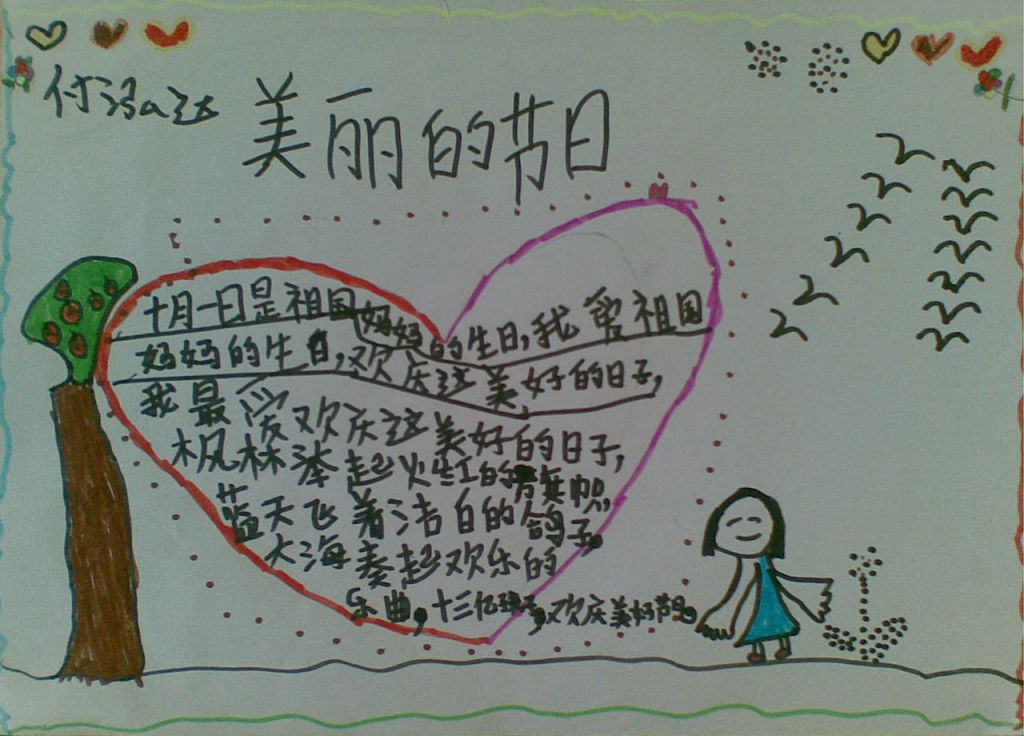 付泓达
美丽的节日
十月一日是祖国妈妈的生日,我爱祖国
妈妈的生日,欢庆这美好的日子,
我最爱欢庆这美好的日子,
枫林起火红的旗帜,
蓝天飞着洁白的鸽子。
大海奏起欢乐的
乐曲,十三亿孩子,欢庆美好节日。